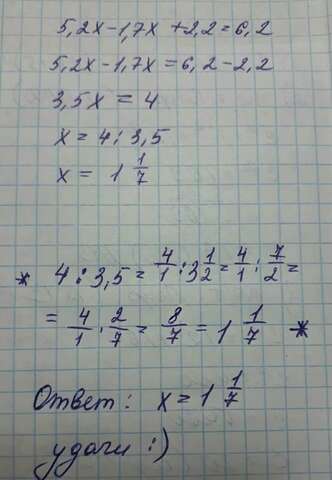 5,2x-1,7x+2,2=6,2
5,2x-1,7x=6,2-2,2
3,5x=4
x=4:3,5
x=1 1/7
* 4:3,5=4/1:3 1/2=4/1:7/2=
=4/1·2/7=8/7=1 1/7 *
Ответ: x=1 1/7
удачи :)